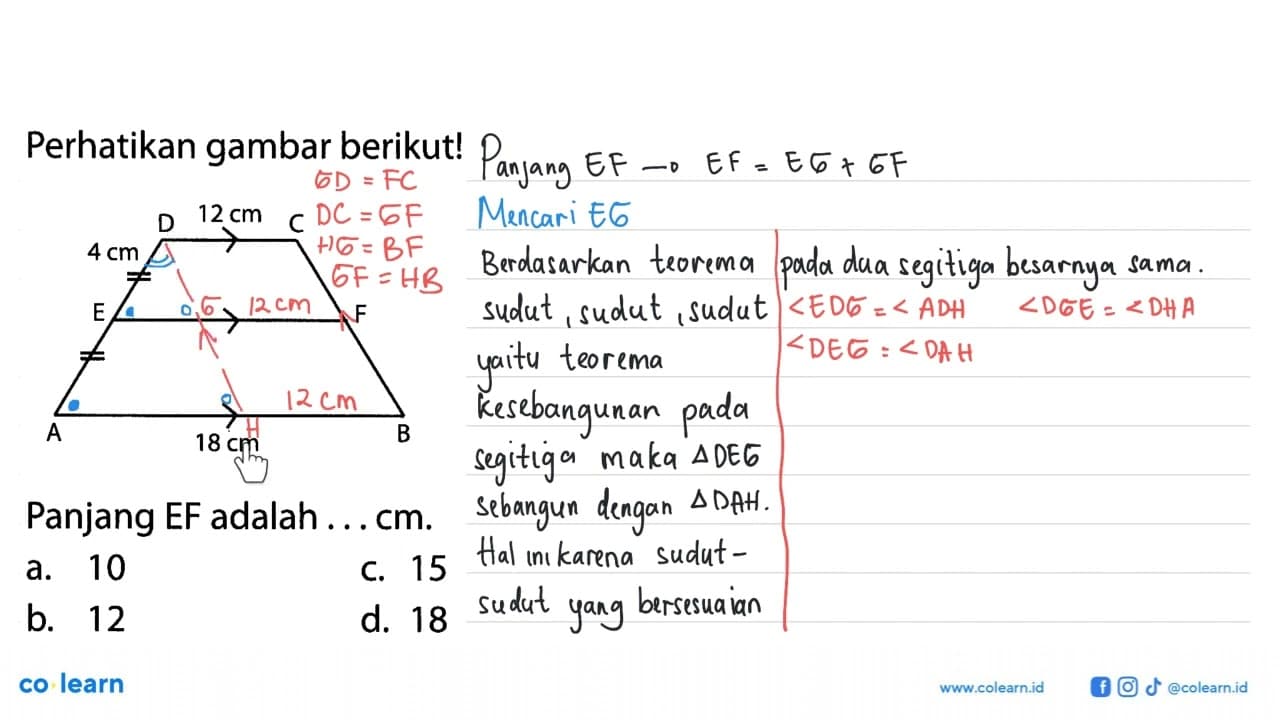 Perhatikan gambar berikut!
GD = FC
DC = GF
HG = BF
GF = HB
D 12 cm C
4 cm
E G 12 cm F
12 cm
A H B
18 cm
Panjang EF adalah . . . cm.
a. 10 c. 15
b. 12 d. 18
Panjang EF → EF = EG + GF
Mencari EG
Berdasarkan teorema
sudut, sudut, sudut
yaitu teorema
kesebangunan pada
segitiga maka △DEG
sebangun dengan △DAH.
Hal ini karena sudut-
sudut yang bersesuaian
pada dua segitiga besarnya sama.
<EDG = < ADH <DGE = <DHA
<DEG = < DAH
co learn
www.colearn.id
@colearn.id